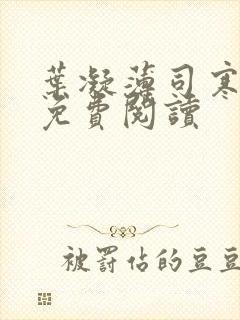 葉凝薄司寒
免費閱讀
被罰站的豆豆